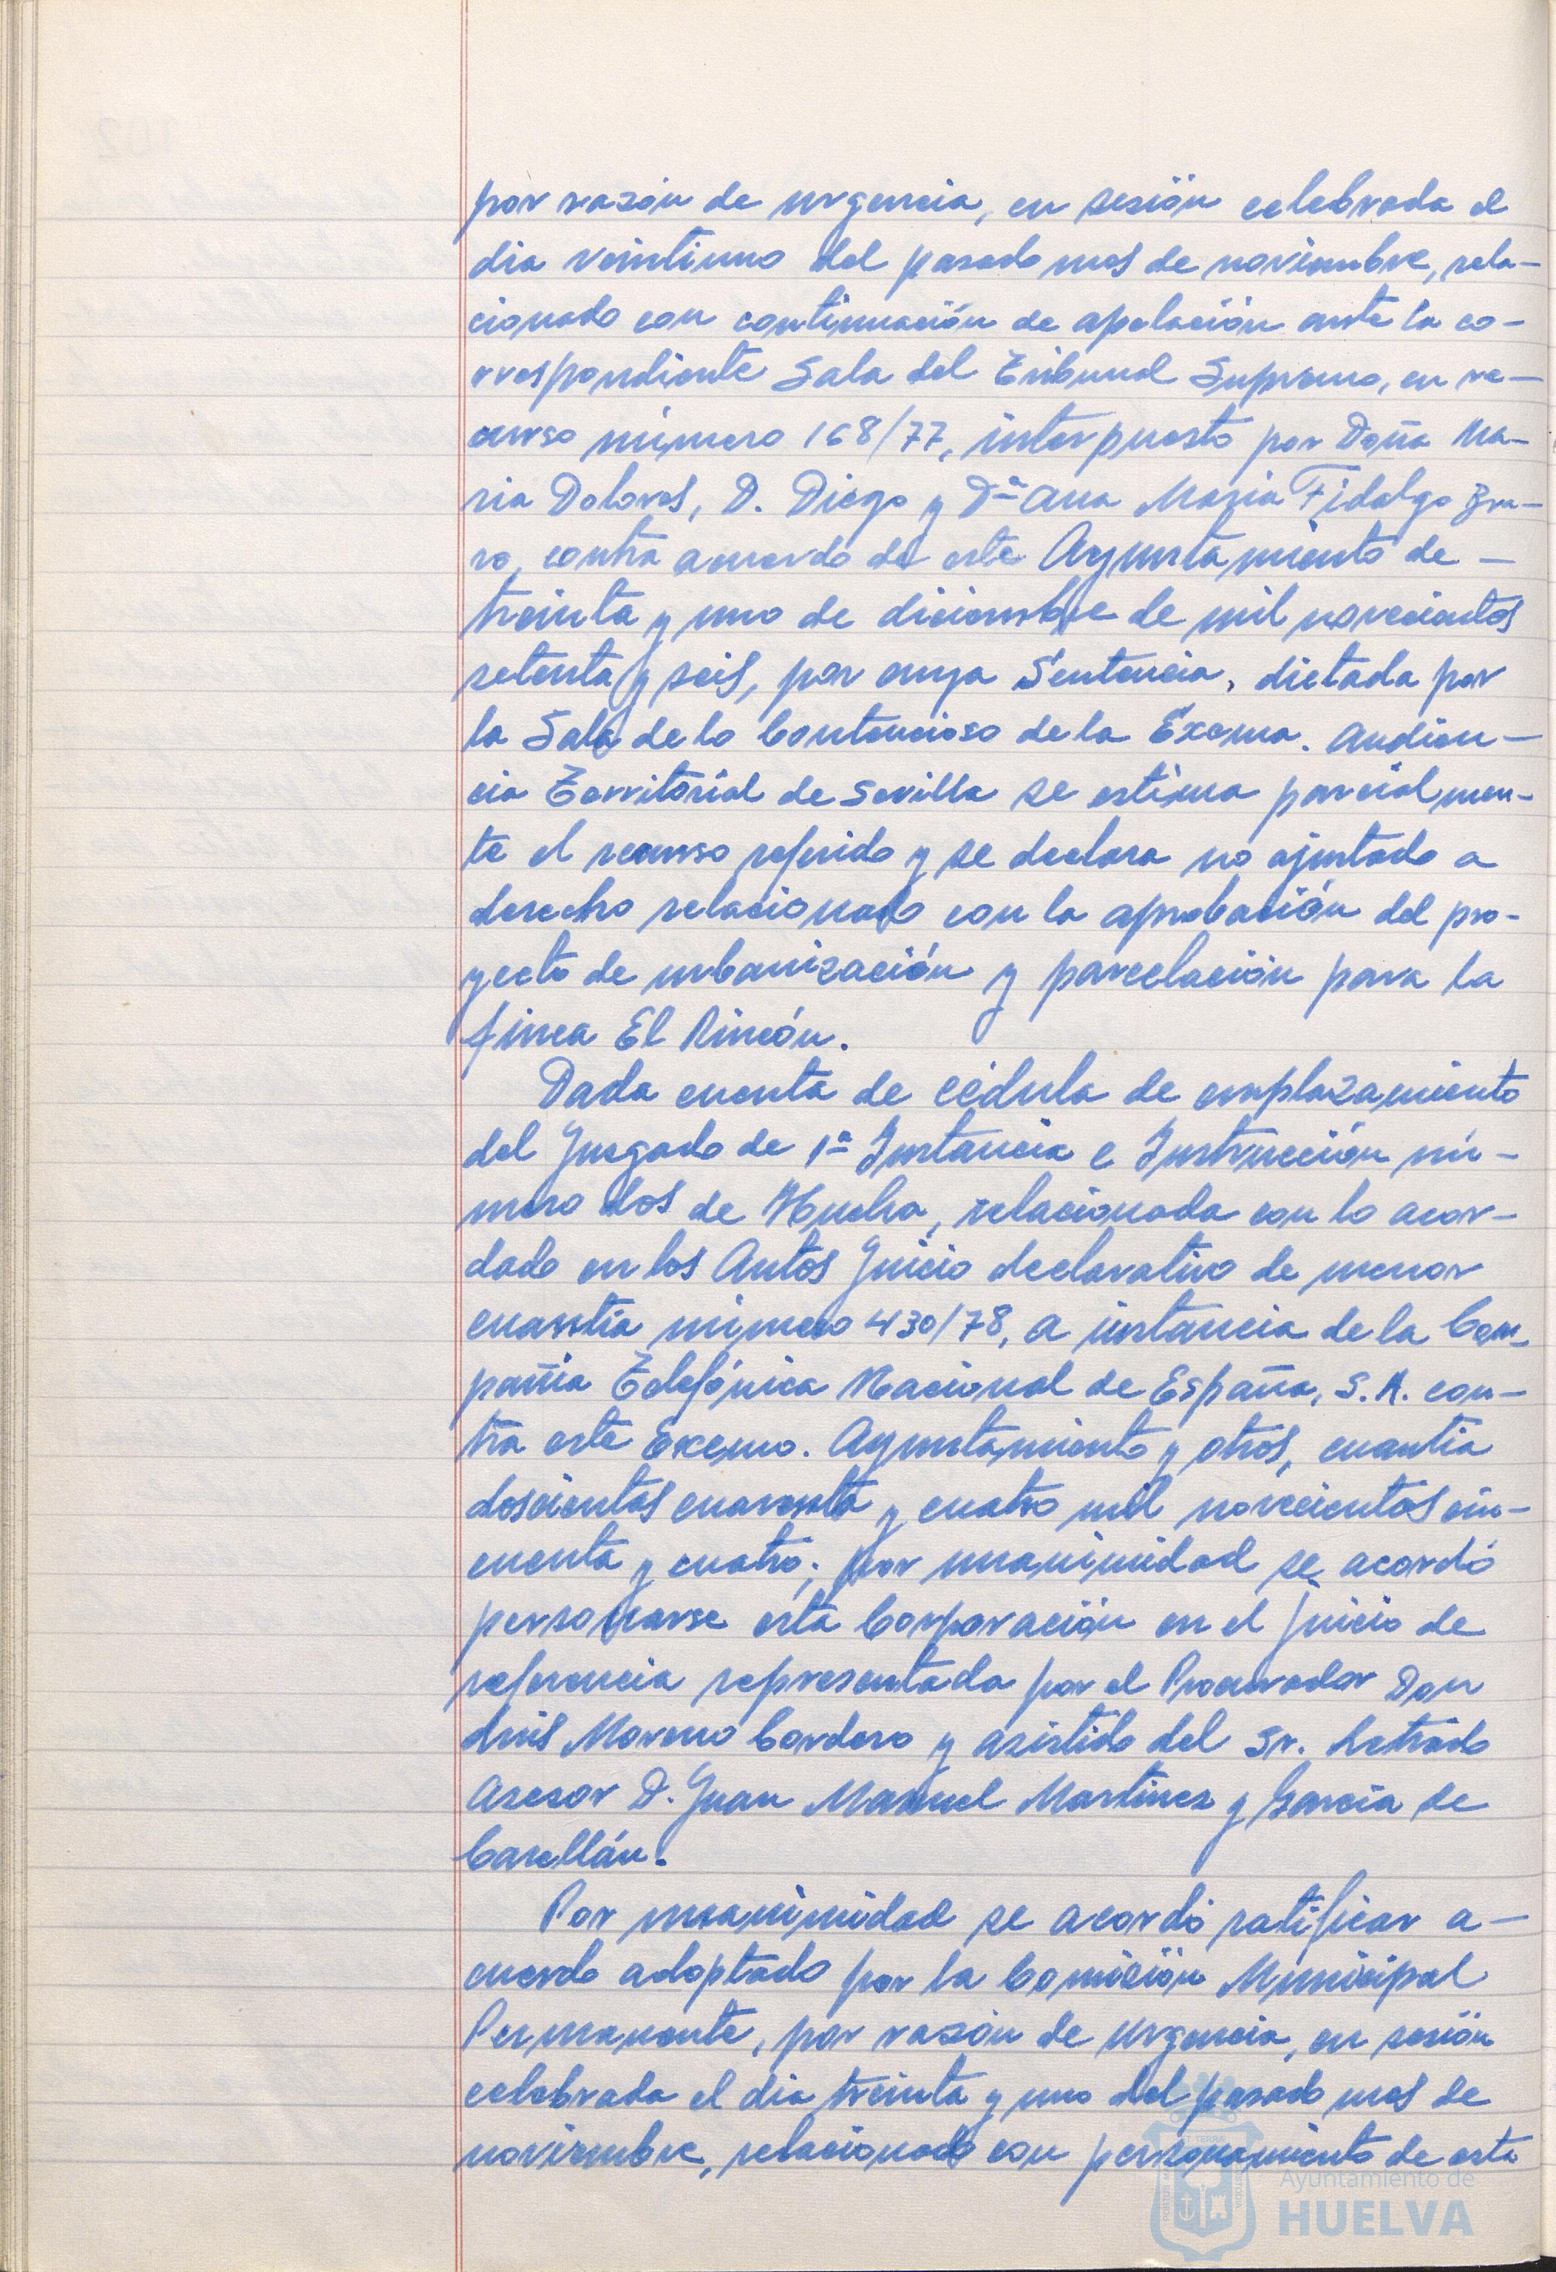 por razón de urgencia, en sesión celebrada el
dia veintiuno del pasado mes de noviembre, rela-
cionado con continuación de apelación ante la co-
rrespondiente Sala del Tribunal Supremo, en re-
curso número 168/77, interpuesto por Doña Ma-
ria Dolores, D. Diego y Dª Ana Maria Fidalgo
ro, contra acuerdo de este Ayuntamiento de -
treinta y uno de diciembre de mil novecientos
setenta y seis, por cuya Sentencia, dictada por
la Sala de lo Contencioso de la Excma. Audien-
cia Territorial de Sevilla se estima parcialmen-
te el recurso referido y se declara no ajustado a
derecho relacionado con la aprobación del pro-
yecto de urbanización y parcelación para la
finca El Rincón.
Dada cuenta de cédula de emplazamiento
del Juzgado de 1ª Instancia e Instrucción nú-
mero dos de Huelva, relacionada con lo acor-
dado en los Autos Juicio declarativo de menor
cuantía número 430/78, a instancia de la Com-
pañia Telefónica Nacional de España, S.A. con-
tra este Excmo. Ayuntamiento y otros, cuantia
doscientas cuarenta y cuatro mil novecientos cin-
cuenta y cuatro; por unanimidad se acordó
personarse esta Corporación en el juicio de
referencia representada por el Procurador Don
Luis Moreno Cordero y asistido del Sr. Letrado
Asesor D. Juan Manuel Martinez y Garcia de
Casellán.
Por unanimidad se acordó ratificar a-
cuerdo adoptado por la Comisión Municipal
Permanente, por razón de urgencia, en sesión
celebrada el dia treinta y uno del pasado mes de
noviembre, relacionado con personamiento de esta
Ayuntamiento de
HUELVA